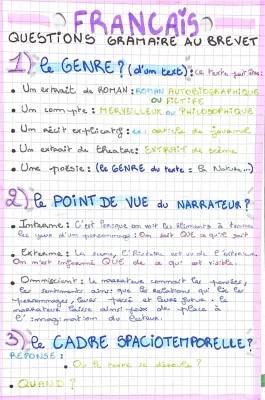 FRANCAIS
QUESTIONS GRAMAIRE AU BREVET
1) le GENRE? (d'un texte): ce texte peut être:
• Un extrait de ROMAN: ROMAN AUTOBIOGRAPHIQUE
OU FICTIFE
• Un compte: MERVEILLEUX OU PHILOSOPHIQUE
• Un récit explicatif: ex: article de journal
• Un extrait de theatre: EXTRAIT de scène
• Une poésie: (le GENRE du texte = la Nature...)
2) le POINT DE VUE du NARRATEUR?
• Interne: C'est lorsque on voit les éléments à travers
les yeux d'un personnage: On sait QUE ce qu'il sait
• Externe: La scène, l'histoire est vu de l'exterieur.
On n'est informé QUE de ce qui est visible.
• Omniscient: le narrateur connait les pensées,
les sentiments ainsi que les relations qui lie les
personnages, leur passé et leur futur: le
narrateur laisse ainsi peu de place à
l'imagination du lecteur.
3) le CADRE SPACIOTEMPORELLE?
RÉPONSE:
• Où le texte se déroule?
• QUAND?